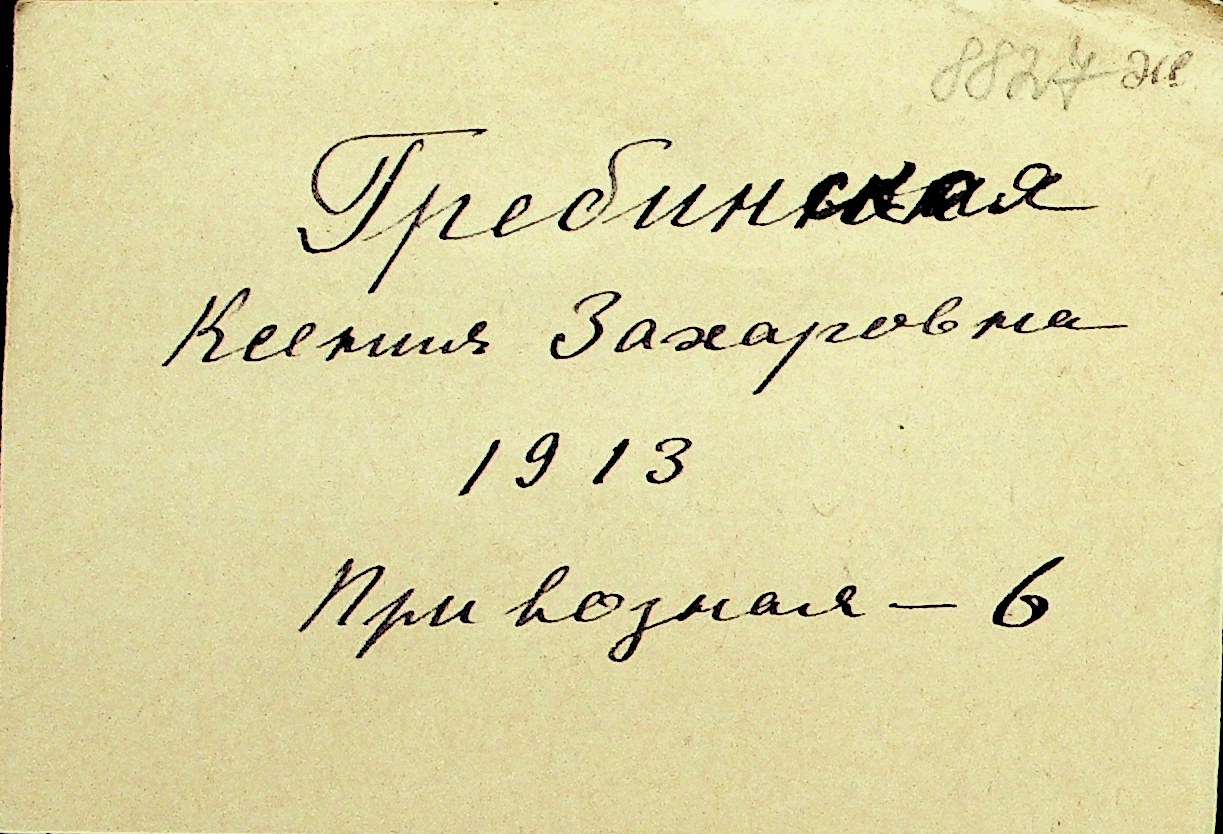 8827
Гребинская
Ксения Захаровна
1913
Привозная — 6